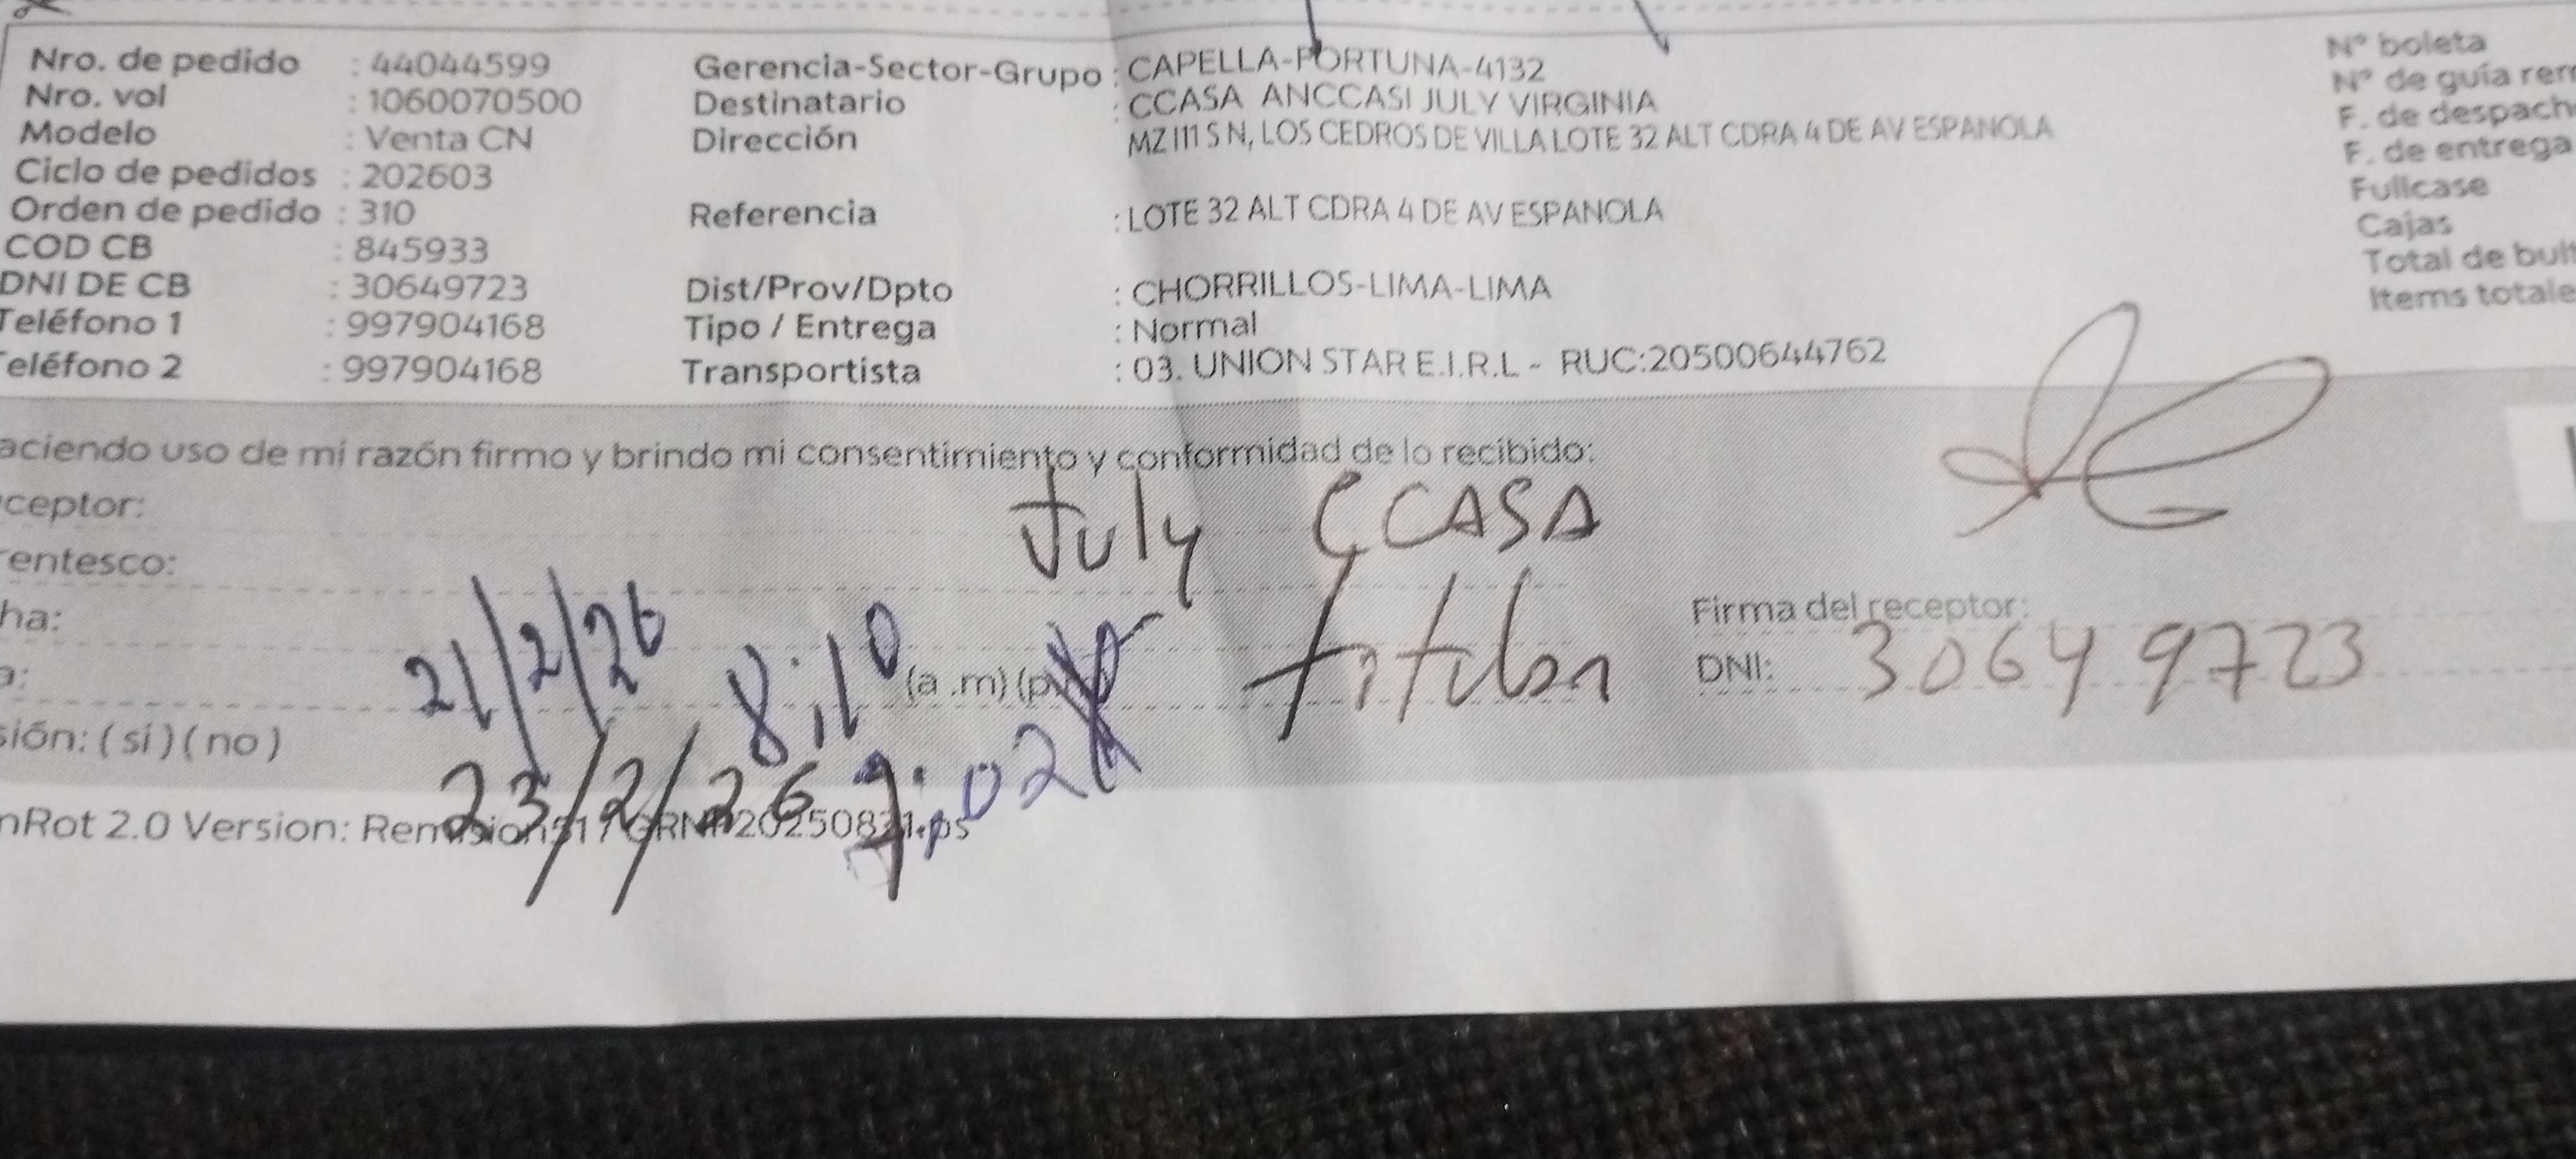 Nro. de pedido : 44044599 Gerencia-Sector-Grupo : CAPELLA-FORTUNA-4132 N° boleta
Nro. vol : 1060070500 Destinatario : CCASA ANCCASI JULY VIRGINIA N° de guía rem
Modelo : Venta CN Dirección MZ I11 S N, LOS CEDROS DE VILLA LOTE 32 ALT CDRA 4 DE AV ESPANOLA F. de despach
Ciclo de pedidos : 202603 F. de entrega
Orden de pedido : 310 Referencia : LOTE 32 ALT CDRA 4 DE AV ESPANOLA Fullcase
COD CB : 845933 Cajas
DNI DE CB : 30649723 Dist/Prov/Dpto : CHORRILLOS-LIMA-LIMA Total de bult
Teléfono 1 : 997904168 Tipo / Entrega : Normal Items totale
eléfono 2 : 997904168 Transportista : 03. UNION STAR E.I.R.L - RUC:20500644762
aciendo uso de mi razón firmo y brindo mi consentimiento y conformidad de lo recibido:
ceptor: July CCASA
entesco: titular
ha: 21/2/26 Firma del receptor:
a: 8:10 (a .m) (p DNI: 30649723
sión: ( si ) ( no )
23/2/26 9:02
nRot 2.0 Version: